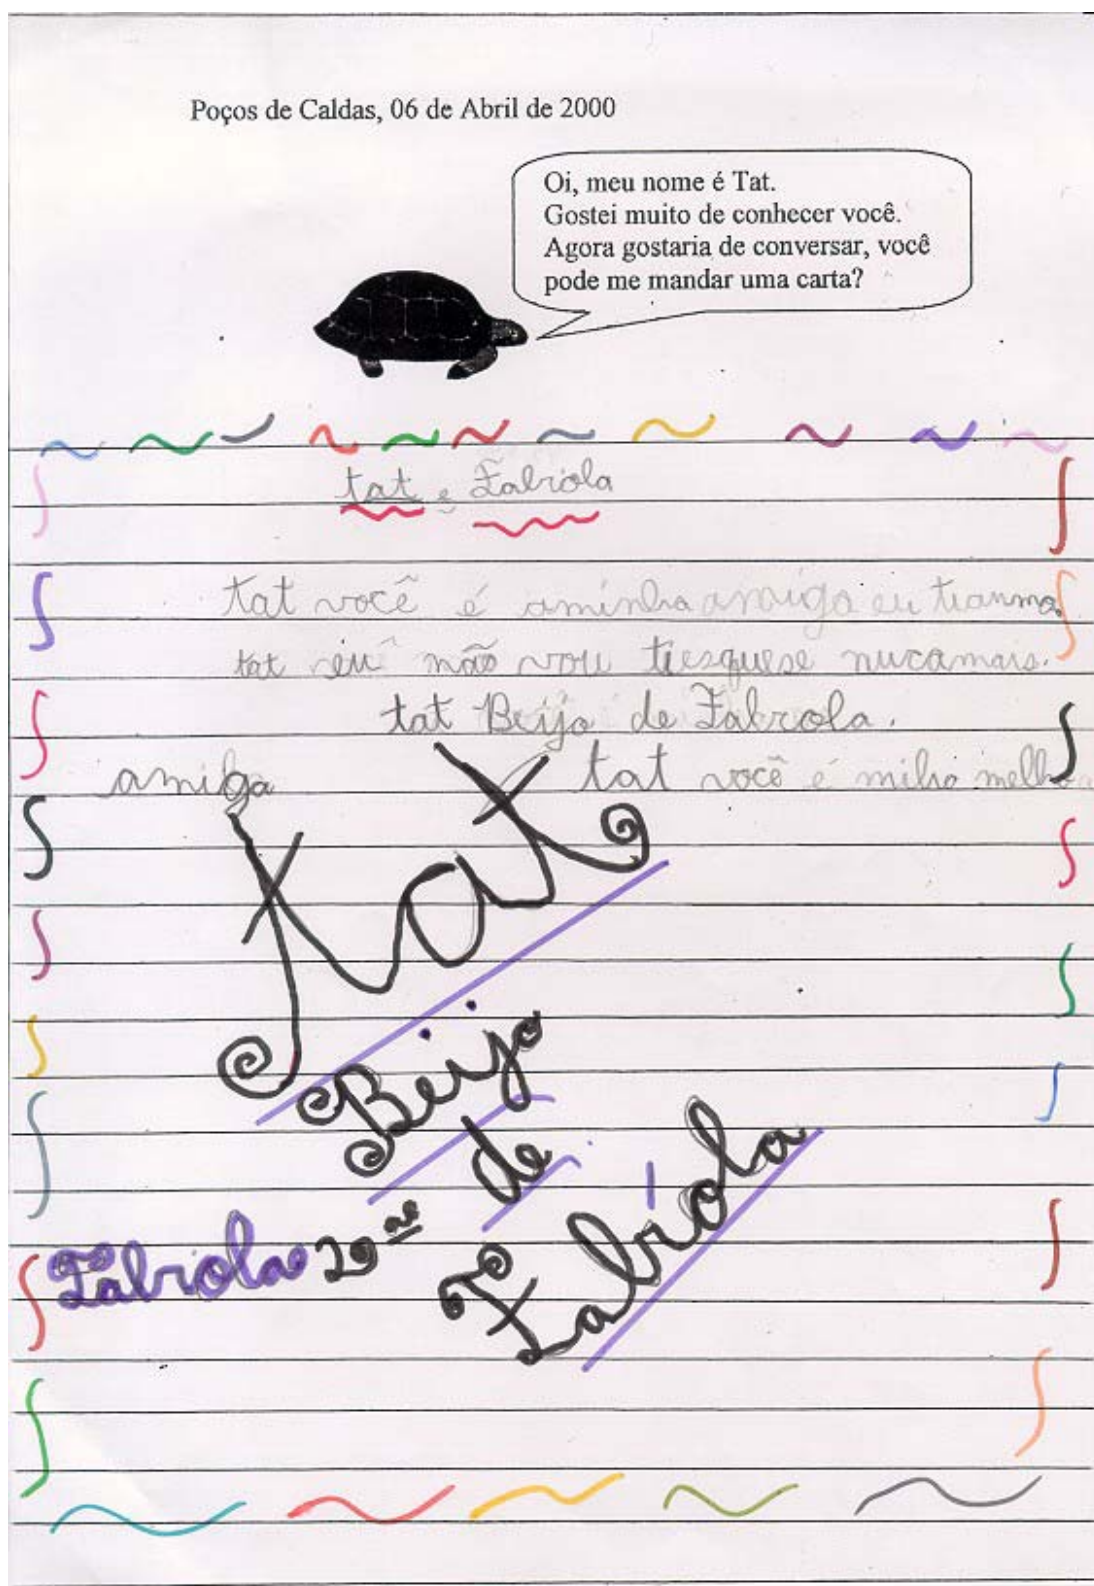 Poços de Caldas, 06 de Abril de 2000
Oi, meu nome é Tat.
Gostei muito de conhecer você.
Agora gostaria de conversar, você
pode me mandar uma carta?
tat e Fabíola
tat você é aminha amiga eu tianmo.
tat eu não vou tiesquese nucamais.
tat Beijo de Fabíola.
amiga tat você é milha melhor
tat
Beijo
de
Fabíola
Fabíola